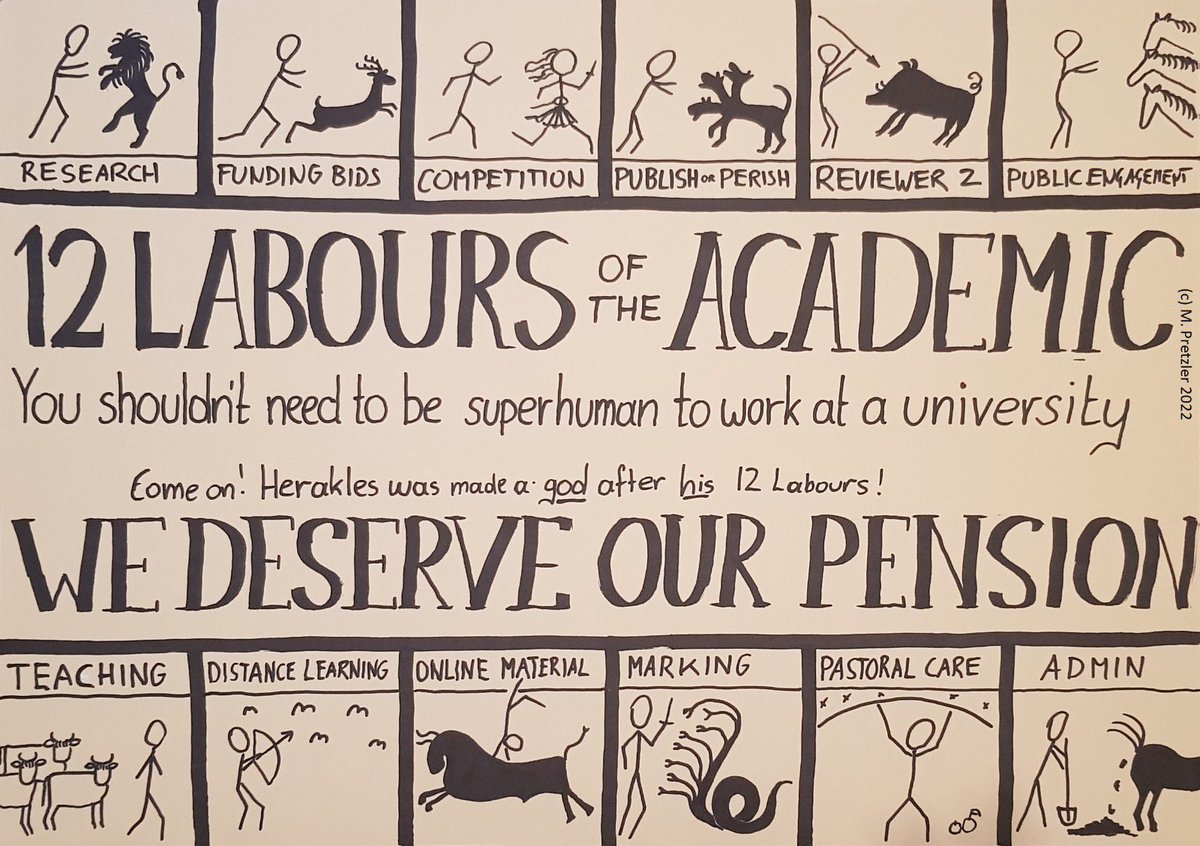 RESEARCH
FUNDING BIDS
COMPETITION
PUBLISH or PERISH
REVIEWER 2
PUBLIC ENGAGEMENT
12 LABOURS OF THE ACADEMIC
You shouldn't need to be superhuman to work at a university
Come on! Herakles was made a god after his 12 Labours!
WE DESERVE OUR PENSION
TEACHING
DISTANCE LEARNING
ONLINE MATERIAL
MARKING
PASTORAL CARE
ADMIN
(c) M. Pretzler 2022